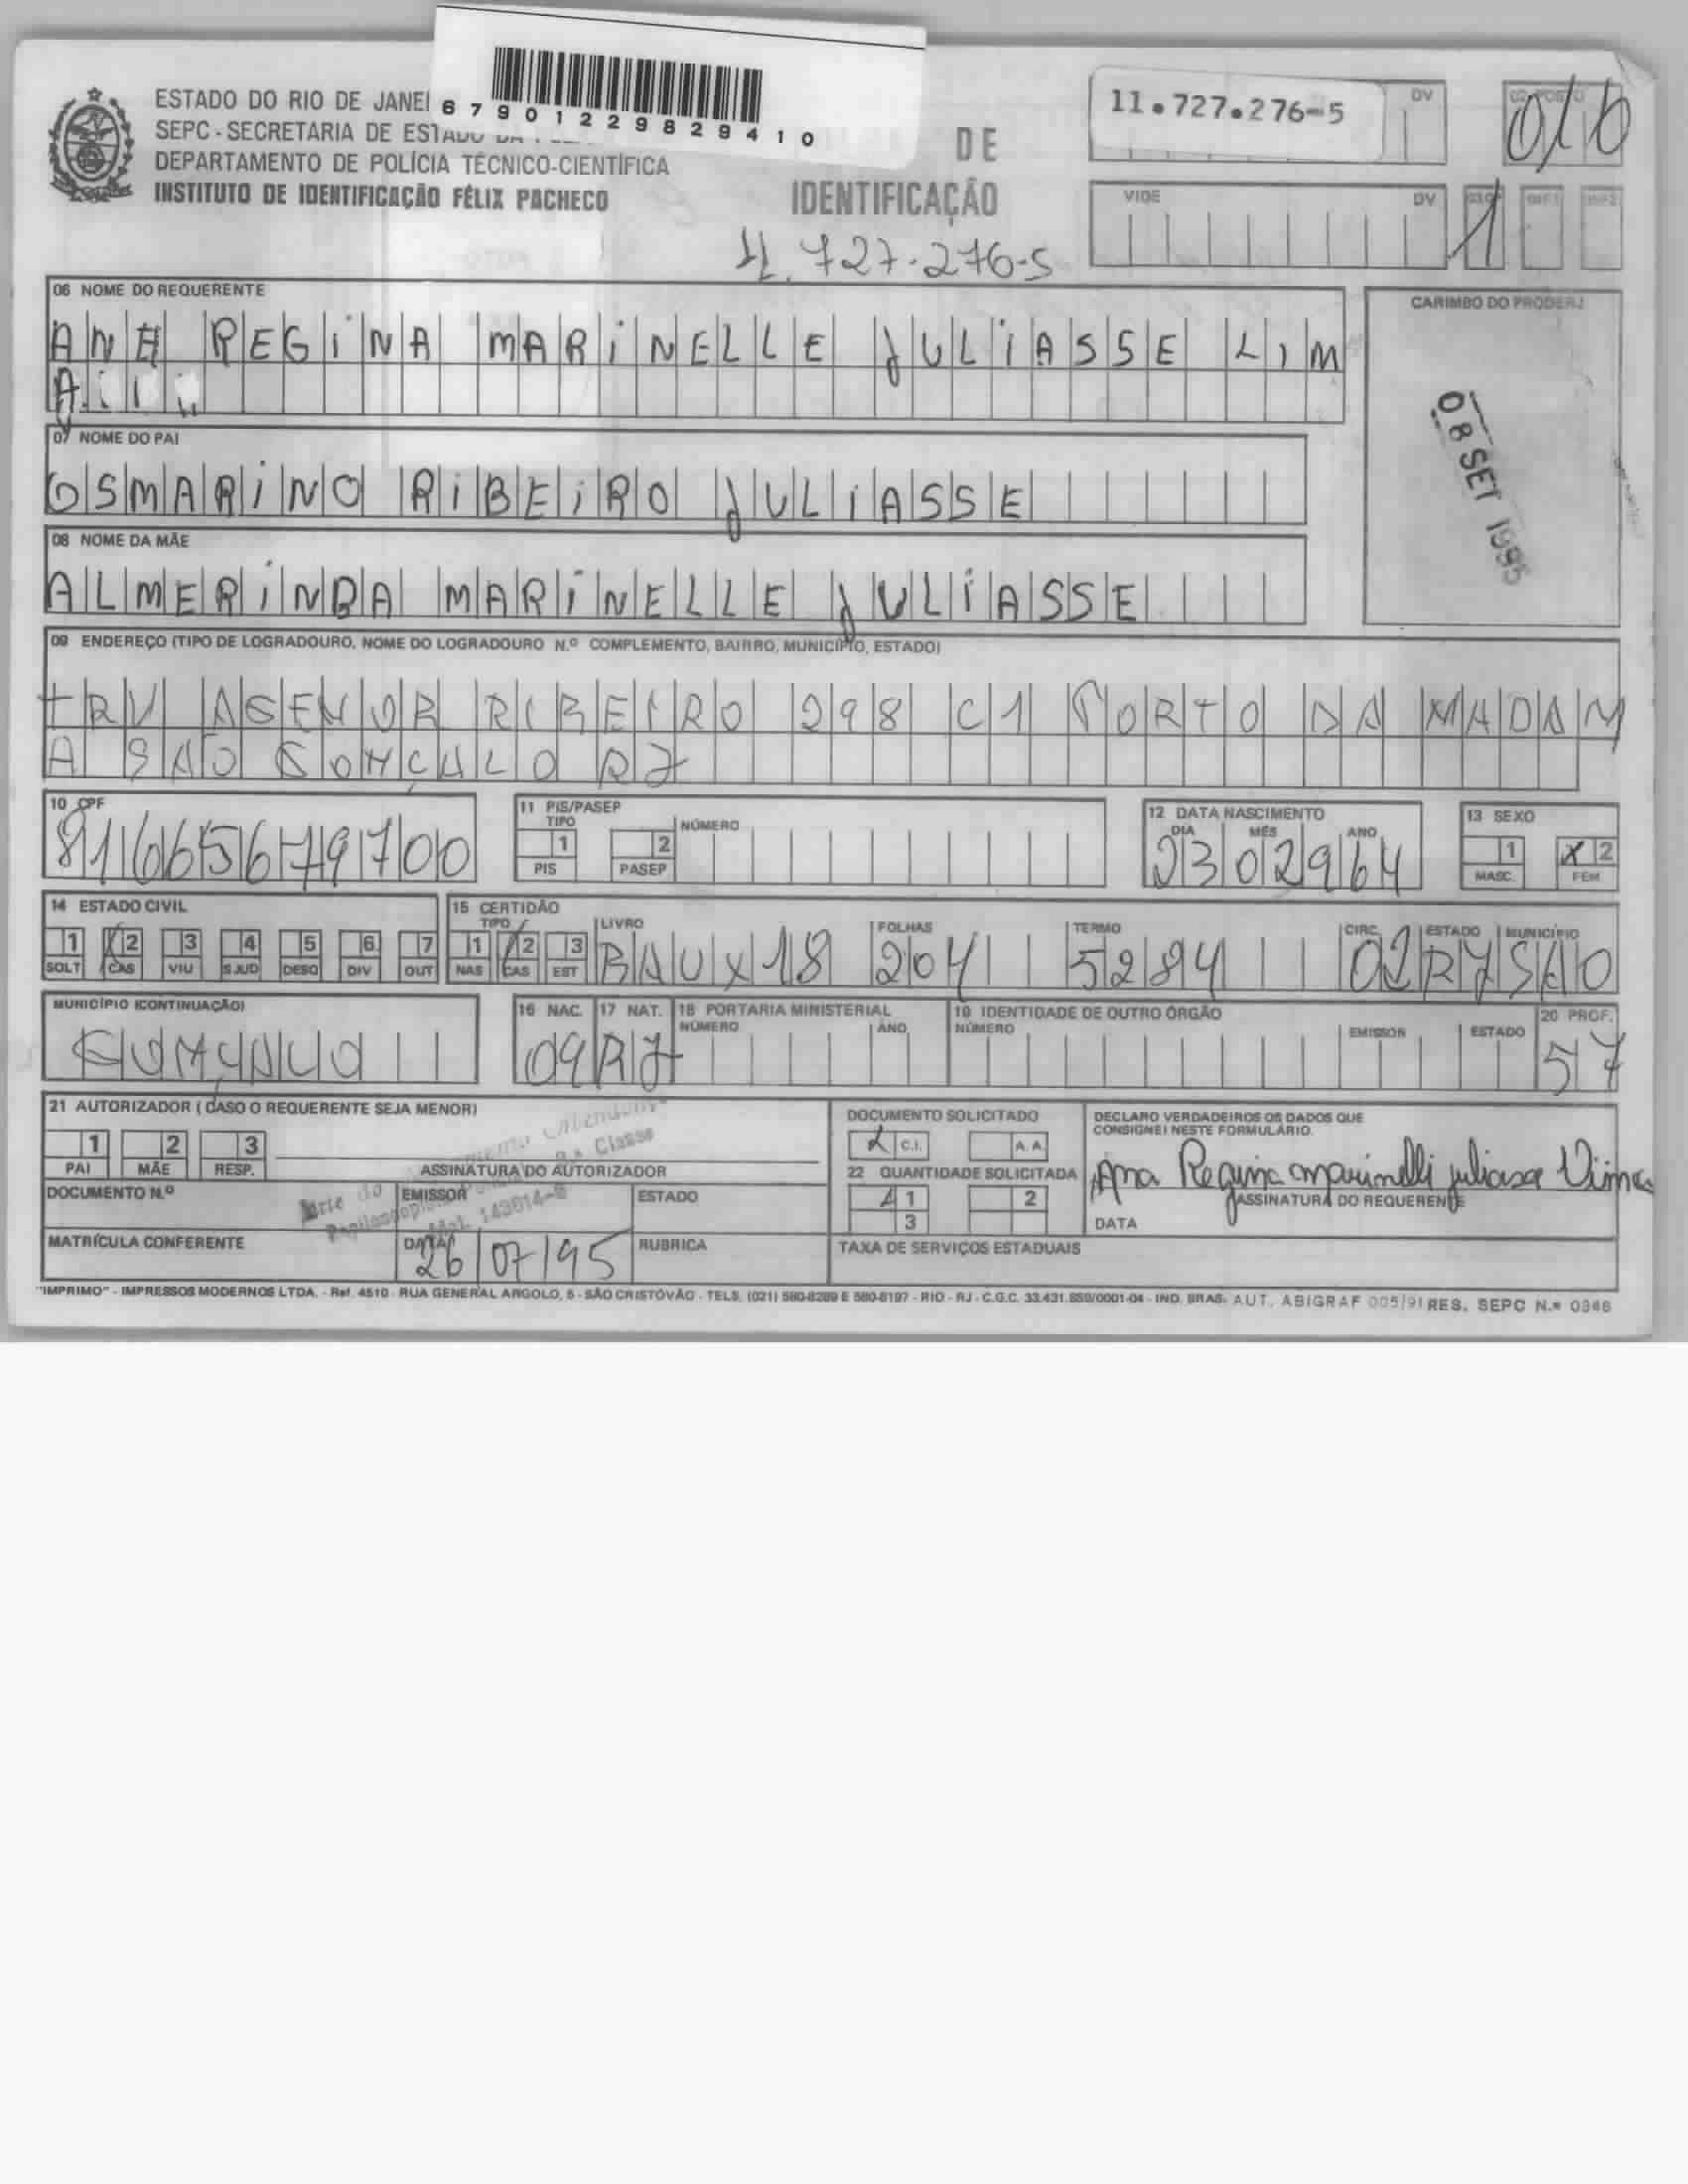 ESTADO DO RIO DE JANEI
SEPC - SECRETARIA DE ESTADO DA
DEPARTAMENTO DE POLÍCIA TÉCNICO-CIENTÍFICA
INSTITUTO DE IDENTIFICAÇÃO FÉLIX PACHECO
67901229829410
DE
IDENTIFICAÇÃO
11.727.276-5
11.727.276-5 DV
02 POSTO
016
VIDE DV
1
06 NOME DO REQUERENTE
ANA REGINA MARINELLE JULIASSE LIM
A
CARIMBO DO PRODERJ
08 SET 1995
07 NOME DO PAI
OSMARINO RIBEIRO JULIASSE
08 NOME DA MÃE
ALMERINDA MARINELLE JULIASSE
09 ENDEREÇO (TIPO DE LOGRADOURO, NOME DO LOGRADOURO N.º COMPLEMENTO, BAIRRO, MUNICÍPIO, ESTADO)
TRV AGENOR RIBEIRO 298 C1 PORTO DA MADAM
A SAO GONÇALO RJ
10 CPF
81665679700
11 PIS/PASEP
TIPO NÚMERO
1 2
PIS PASEP
12 DATA NASCIMENTO
DIA MÊS ANO
23 02 964
13 SEXO
1 X 2
MASC. FEM
14 ESTADO CIVIL
1 2 3 4 5 6 7
SOLT CAS VIU SJUD DESQ DIV OUT
15 CERTIDÃO
TIPO LIVRO FOLHAS TERMO CIRC. ESTADO MUNICÍPIO
1 2 3 BAUX18 204 5284 02 RJ SAO
NAS CAS EST
MUNICÍPIO (CONTINUAÇÃO)
GONÇALO
16 NAC.
09
17 NAT.
RJ
18 PORTARIA MINISTERIAL
NÚMERO ANO
19 IDENTIDADE DE OUTRO ÓRGÃO
NÚMERO EMISSOR ESTADO
20 PROF.
57
21 AUTORIZADOR (CASO O REQUERENTE SEJA MENOR)
1 2 3
PAI MÃE RESP.
ASSINATURA DO AUTORIZADOR
Classe
Mat. 143614-
DOCUMENTO N.º EMISSOR ESTADO
MATRÍCULA CONFERENTE DATA RUBRICA
26/07/95
DOCUMENTO SOLICITADO
X C.I. A.A.
22 QUANTIDADE SOLICITADA
1 2
3
DECLARO VERDADEIROS OS DADOS QUE
CONSIGNEI NESTE FORMULÁRIO.
Ana Regina Marinelli Juliasse Lima
ASSINATURA DO REQUERENTE
DATA
TAXA DE SERVIÇOS ESTADUAIS
"IMPRIMO" - IMPRESSOS MODERNOS LTDA. - Ref. 4510 - RUA GENERAL ARGOLO, 5 - SÃO CRISTÓVÃO - TELS. (021) 580-8289 E 580-8197 - RIO - RJ - C.G.C. 33.431.859/0001-04 - IND. BRAS. AUT. ABIGRAF 005/91 RES. SEPC N.º 0346